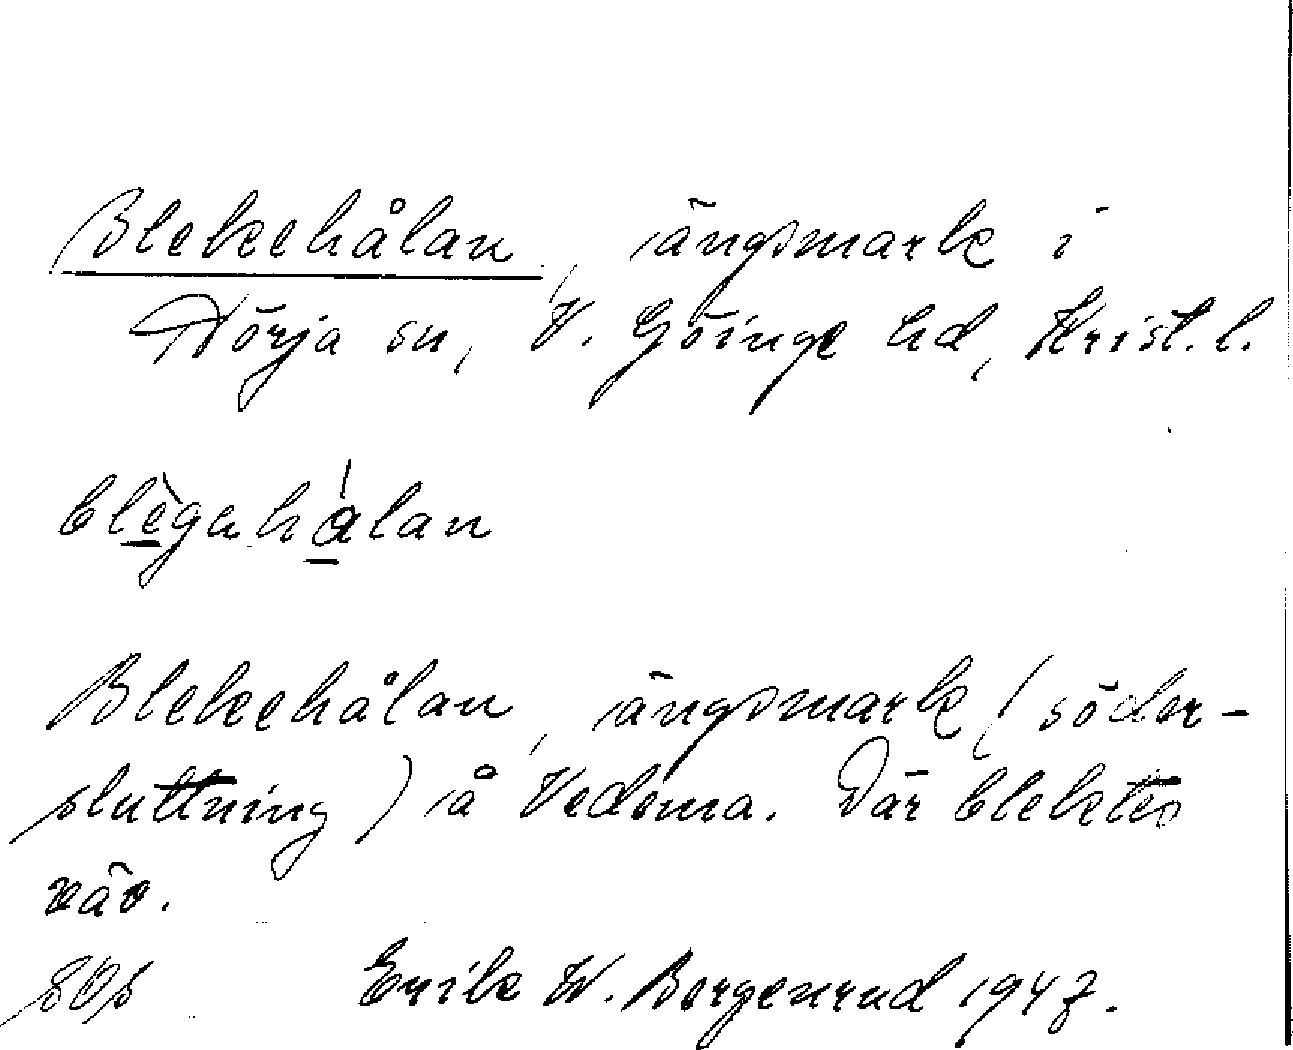 Blekehålan, ängsmark i
Nörja sn, V. Göinge hd, Krist. l.
blègahålan
Blekehålan, ängsmark (söder-
sluttning) å Vedema. Där blektes
väv.
Erik W. Bergenrud 1947.